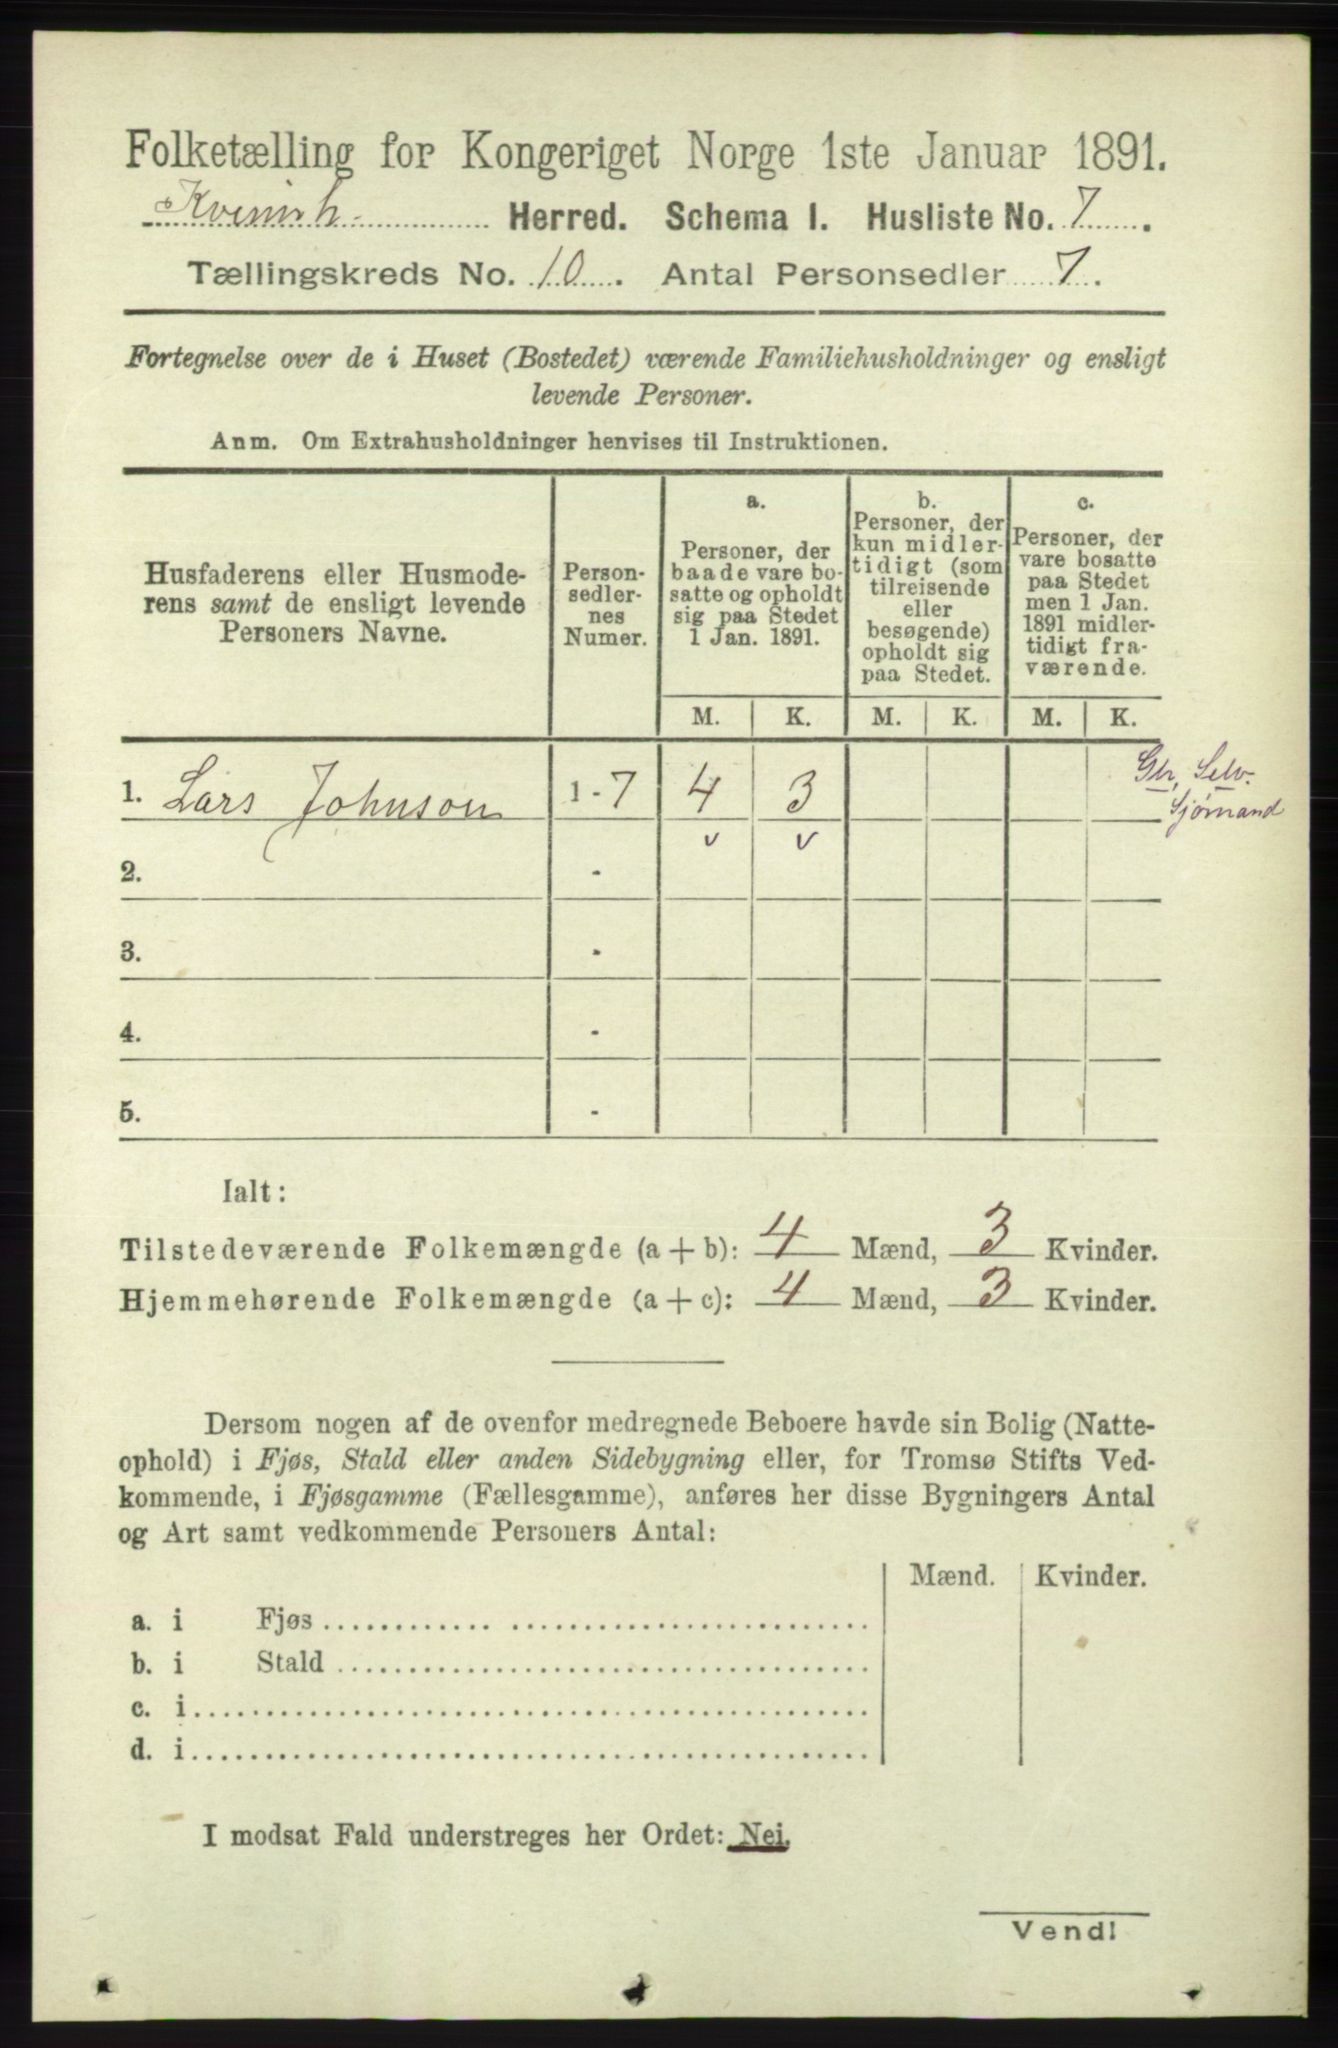 Folketælling for Kongeriget Norge 1ste Januar 1891.
Kvinnh. Herred. Schema I. Husliste No. 7.
Tællingskreds No. 10. Antal Personsedler 7.
Fortegnelse over de i Huset (Bostedet) værende Familiehusholdninger og ensligt
levende Personer.
Anm. Om Extrahusholdninger henvises til Instruktionen.
Husfaderens eller Husmode-
rens samt de ensligt levende
Personers Navne.
Person-
sedler-
nes
Numer.
a.
Personer, der
baade vare bo-
satte og opholdt
sig paa Stedet
1 Jan. 1891.
b.
Personer, der
kun midler-
tidigt (som
tilreisende
eller
besøgende)
opholdt sig
paa Stedet.
c.
Personer, der
vare bosatte
paa Stedet
men 1 Jan.
1891 midler-
tidigt fra-
værende.
M. K. M. K. M. K.
1. Lars Johnson 1 - 7 4 3
v v
Gbr, Selv.
Sjømand
2. -
3. -
4. -
5. -
Ialt:
Tilstedeværende Folkemængde (a + b): 4 Mænd, 3 Kvinder.
Hjemmehørende Folkemængde (a + c): 4 Mænd, 3 Kvinder.
Dersom nogen af de ovenfor medregnede Beboere havde sin Bolig (Natte-
ophold) i Fjøs, Stald eller anden Sidebygning eller, for Tromsø Stifts Ved-
kommende, i Fjøsgamme (Fællesgamme), anføres her disse Bygningers Antal
og Art samt vedkommende Personers Antal:
Mænd. Kvinder.
a. i Fjøs
b. i Stald
c. i
d. i
I modsat Fald understreges her Ordet: Nei.
Vend!